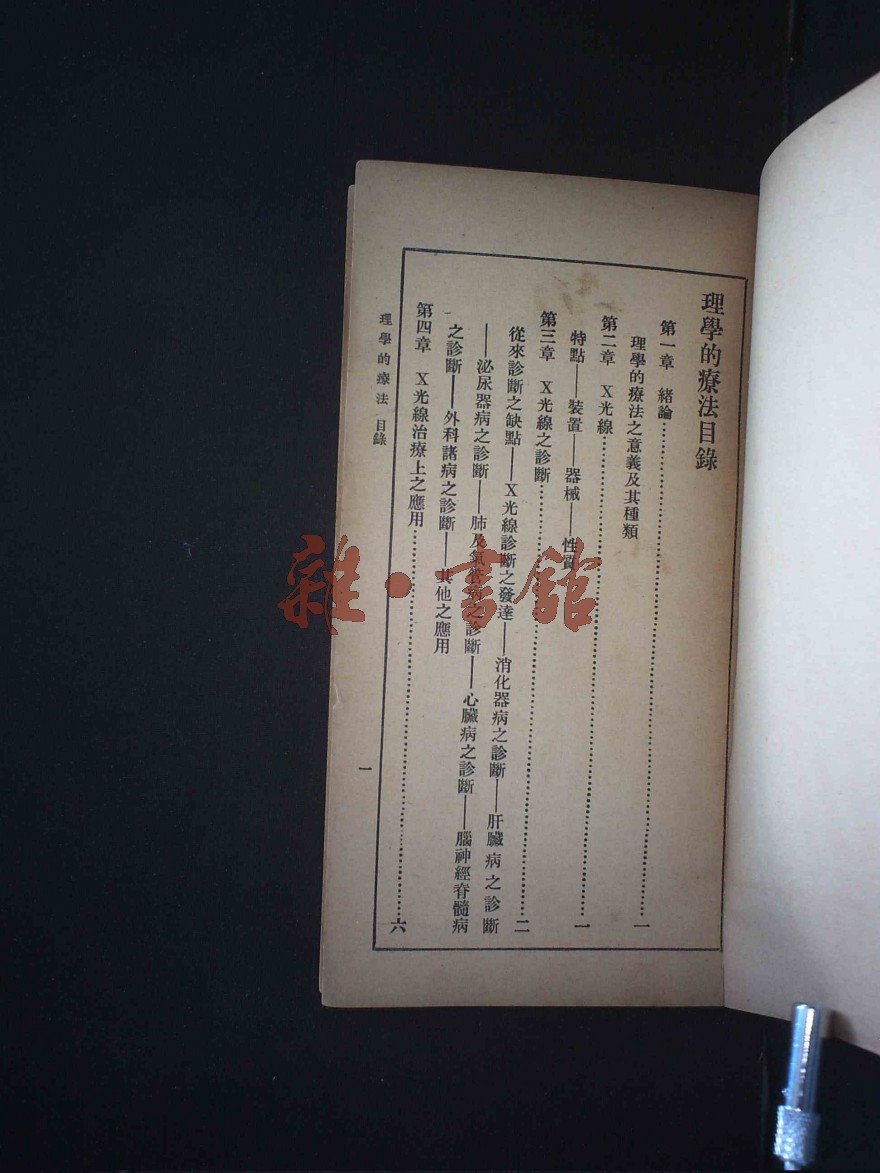 理學的療法目錄
第一章 緒論……………………一
理學的療法之意義及其種類
第二章 X光線……………………一
特點——裝置——器械——性質
第三章 X光線之診斷……………………二
從來診斷之缺點——X光線診斷之發達——消化器病之診斷——肝臟病之診斷
——泌尿器病之診斷——肺及氣管病之診斷——心臟病之診斷——腦神經脊髓病
之診斷——外科諸病之診斷——其他之應用
第四章 X光線治療上之應用……………………六
理學的療法 目錄
一
雜·書館